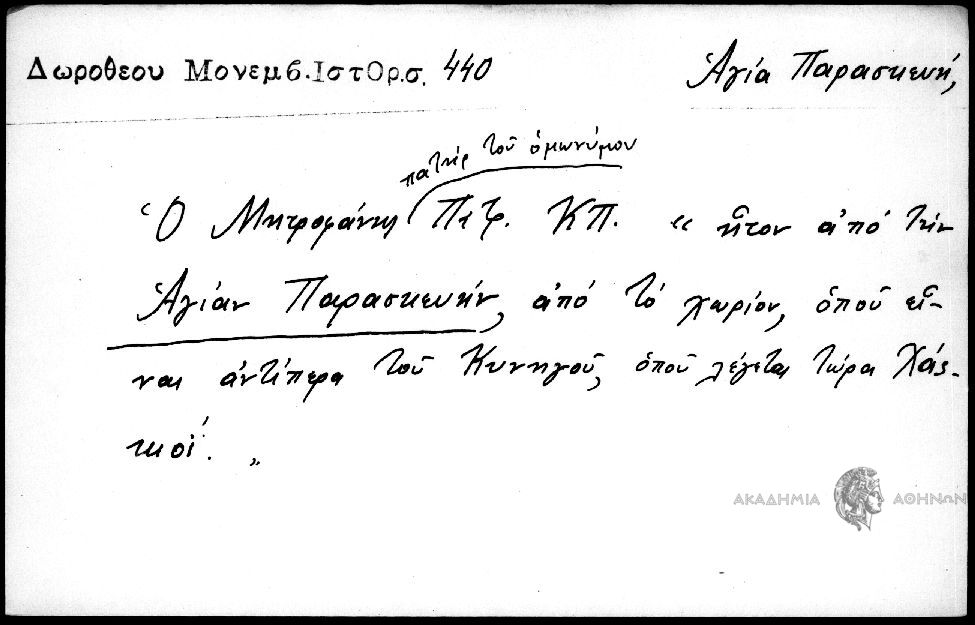 Δωροθεου Μονεμβ. Ιστορ. σ. 440
Ἁγία Παρασκευή,
πατὴρ τοῦ ὁμωνύμου
Ὁ Μητροφάνης Πατρ. ΚΠ. « ἦτον ἀπό τὴν
Ἁγίαν Παρασκευήν, ἀπό τὸ χωρίον, ὁποῦ εἶ-
ναι ἀντίπερα τοῦ Κυνηγοῦ, ὁποῦ λέγεται τώρα Χάς-
κιοϊ. „
ΑΚΑΔΗΜΙΑ ΑΘΗΝΩΝ